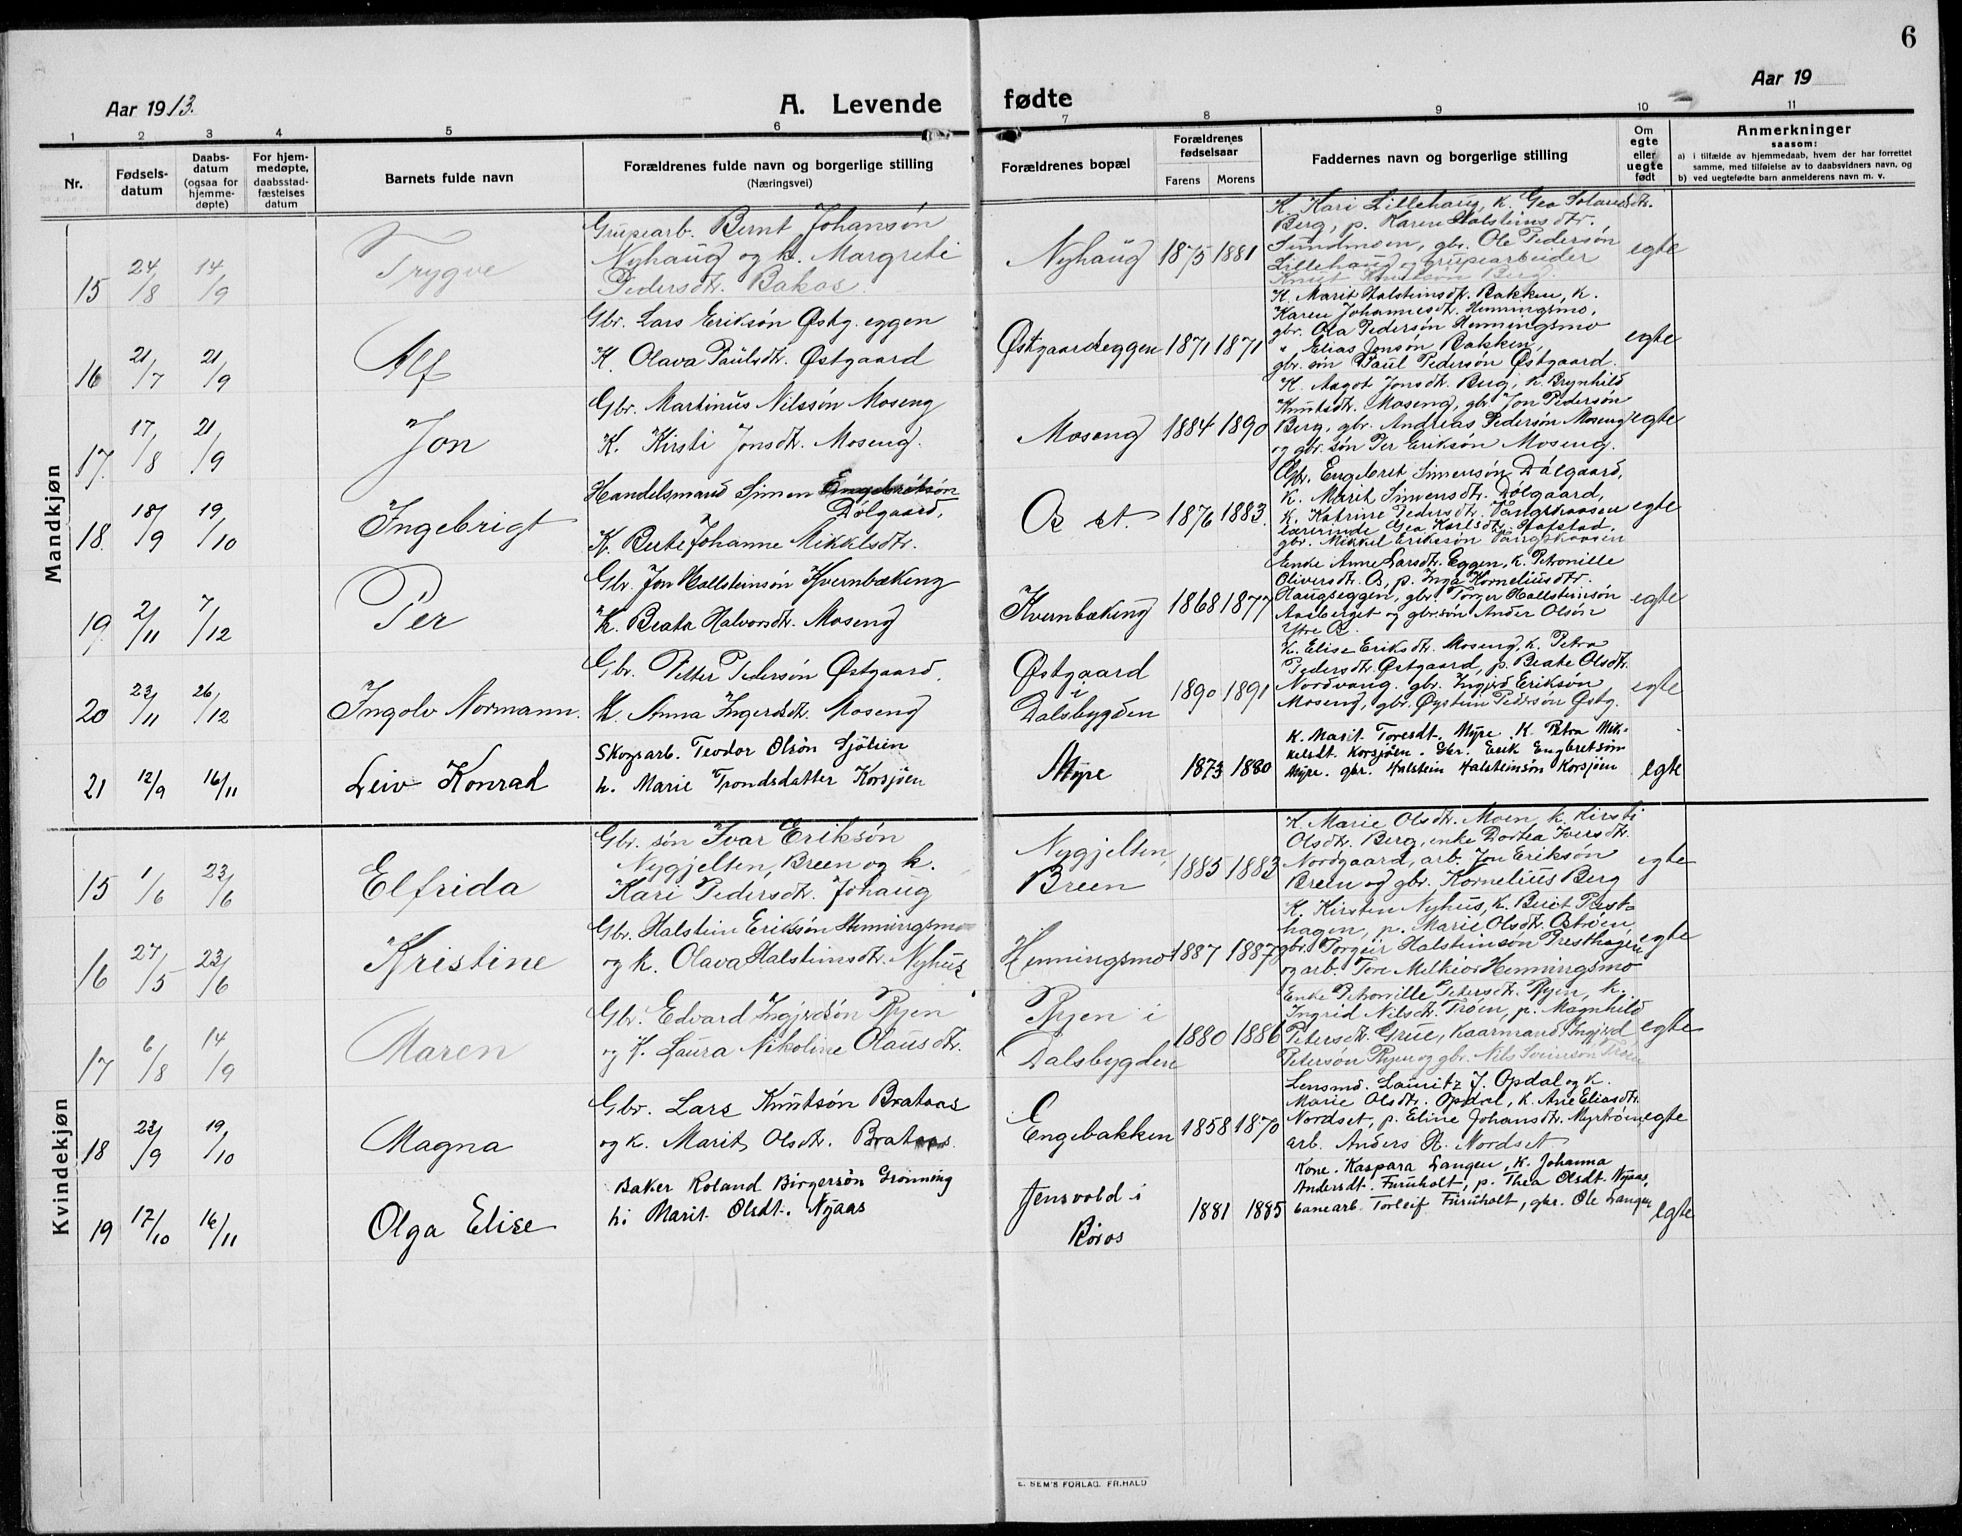 6
Aar 1913.
A. Levende fødte
Aar 19
1 2 3 4 5 6 7 8 9 10 11
Nr.
Fødsels-
datum
Daabs-
datum
(ogsaa for
hjemme-
døpte)
For hjem-
medøpte,
daabsstad-
fæstelses
datum
Barnets fulde navn
Forældrenes fulde navn og borgerlige stilling
(Næringsvei)
Forældrenes bopæl
Forældrenes
fødselsaar
Farens Morens
Faddernes navn og borgerlige stilling
Om
egte
eller
uegte
født
Anmerkninger
saasom:
a) i tilfælde av hjemmedaab, hvem der har forrettet
samme, med tilføielse av to daabsvidners navn, og
b) ved uegtefødte barn anmelderens navn m. v.
Mandkjøn
15 24/8 14/9 Trygve
Grubearb. Bernt Johansøn
Nyhaug og k. Margrete
Pedersdtr. Bakos.
Nyhaug 1875 1881
K. Kari Lillehaug, k. Gea Olausdtr.
Berg, p. Karen Halsteinsdtr.
Sundmoen, gbr. Ole Pedersøn
Lillehaug og grubearbeider
Knut Knutsøn Berg.
egte
16 21/7 21/9 Alf
Gbr. Lars Eriksøn Østg. eggen
K. Olava Paulsdtr. Østgaard
Østgaardseggen 1871 1871
K. Marit Halsteinsdt. Bakken, k.
Karen Johannesdt. Henningsmo,
gbr. Ola Pedersøn Henningsmo
" Elias Jonsøn Bakken,
gbr. søn Paul Pedersøn Østgaard.
egte
17. 17/8 21/9 Jon
Gbr. Martinus Nilssøn Moseng
K. Kirsti Jonsdtr. Moseng.
Moseng 1884 1890
K. Aagot Jonsdtr. Berg, k. Brynhild
Knutsdtr. Moseng, gbr. Jon Pedersøn
Berg, gbr. Andreas Pedersøn Moseng
og gbr. søn Per Eriksøn Moseng.
egte
18. 18/9 19/10 Ingebrigt
Handelsmand Simen Engebretsøn
Dølgaard,
K. Berte Johanne Mikkelsdtr.
Os st. 1876 1883.
Gbr. Engebret Simensøn Dølgaard,
k. Marit Simensdtr. Dølgaard,
k. Katrine Pedersdtr. Vangskaasen
lærerinde Gea Karlsdtr. Hafstad.
gbr. Mikkel Erikssøn Vangskaasen
egte
19. 2/11 7/12 Per
Gbr. Jon Hallsteinsøn Kvernbækeng
K. Beata Halvorsdtr. Moseng
Kvernbækeng 1868 1877
Enke Anne Larsdtr. Eggen, k. Petronille
Oliversdtr. Os, p. Inga Korneliusdtr.
Haugseggen, gbr. Torger Hallsteinsøn
Aasberget og gbr.søn Ander Olsøn
Ytre Os.
egte
20 23/11 26/12 Ingolv Normann.
Gbr. Petter Pedersøn Østgaard.
K. Anna Ingerdsdtr. Moseng
Østgaard
i
Dalsbygden 1890 1891
K. Elise Eriksdtr. Moseng, k. Petra
Pedersdtr. Østgaard, p. Beate Olsdtr.
Nordvang. gbr. Ingjerd Eriksøn
Moseng, gbr. Øystein Pedersøn Østg.
egte
21 12/9 16/11 Leiv Konrad
Skogsarb. Teodor Olsøn Sjølien
h. Marie Trondsdatter Korsjøen
Myre 1873 1880
K. Marit Toresdt. Myre. K. Petra Mik-
kelsdt. Korsjøen. Gbr. Erik Engbretsøn
Myre. gbr. Halstein Halsteinsøn Korsjøen
egte
Kvindekjøn
15 1/6 23/6 Elfrida
Gbr. søn Ivar Eriksøn
Nygjelten, Breen og k.
Kari Pedersdtr. Johaug
Nygjelten,
Breen 1885 1883
K. Marie Olsdtr. Moen, k. Kirsti
Olsdtr. Berg, enke Dortea Iversdtr.
Nordgaard, arb. Jon Eriksøn
Breen og gbr. Kornelius Berg
egte
16 27/5 23/6 Kristine
Gbr. Halstein Eriksøn Henningsmo
og k. Olava Halsteinsdtr. Nyhus
Henningsmo 1887 1887
K. Kirsten Nyhus, k. Berit Prest-
hagen, p. Marie Olsdtr. Østrøen,
gbr. Torgeir Halsteinsøn Presthagen
og arb. Tore Melkior Henningsmo
egte
17 6/8 14/9 Maren
Gbr. Edvard Ingjerdsøn Ryen
og K. Laura Nikoline Olausdtr.
Ryen i
Dalsbygden 1880 1886
Enke Petronille Petersdtr. Ryen, k.
Ingrid Nilsdtr. Trøen, p. Magnhild
Petersdtr. Grue, kaarmand Ingjerd
Petersøn Ryen og gbr. Nils Svensøn Trøen
egte
18 23/9 19/10 Magna
Gbr. Lars Knutsøn Brataas
og k. Marit Olsdtr. Brataas
Engebakken 1858 1870
Lensmd. Lauritz J. Opdal og k.
Marie Olsdtr. Opdal, k. Ane Eliasdtr.
Nordset, p. Eline Johansdtr. Myrtrøen
arb. Anders R. Nordset
egte
19 17/10 16/11 Olga Elise
Baker Roland Birgersøn Grønning
h. Marit Olsdt. Nyaas
Jensvold i
Røros 1881 1885
Kone. Kaspara Langen, k. Johanna
Andersdt. Furuholt, p. Thea Olsdt. Nyaas,
banearb. Torleif Furuholt, gbr. Ole Langen
egte
E. SEM'S FORLAG. FR.HALD